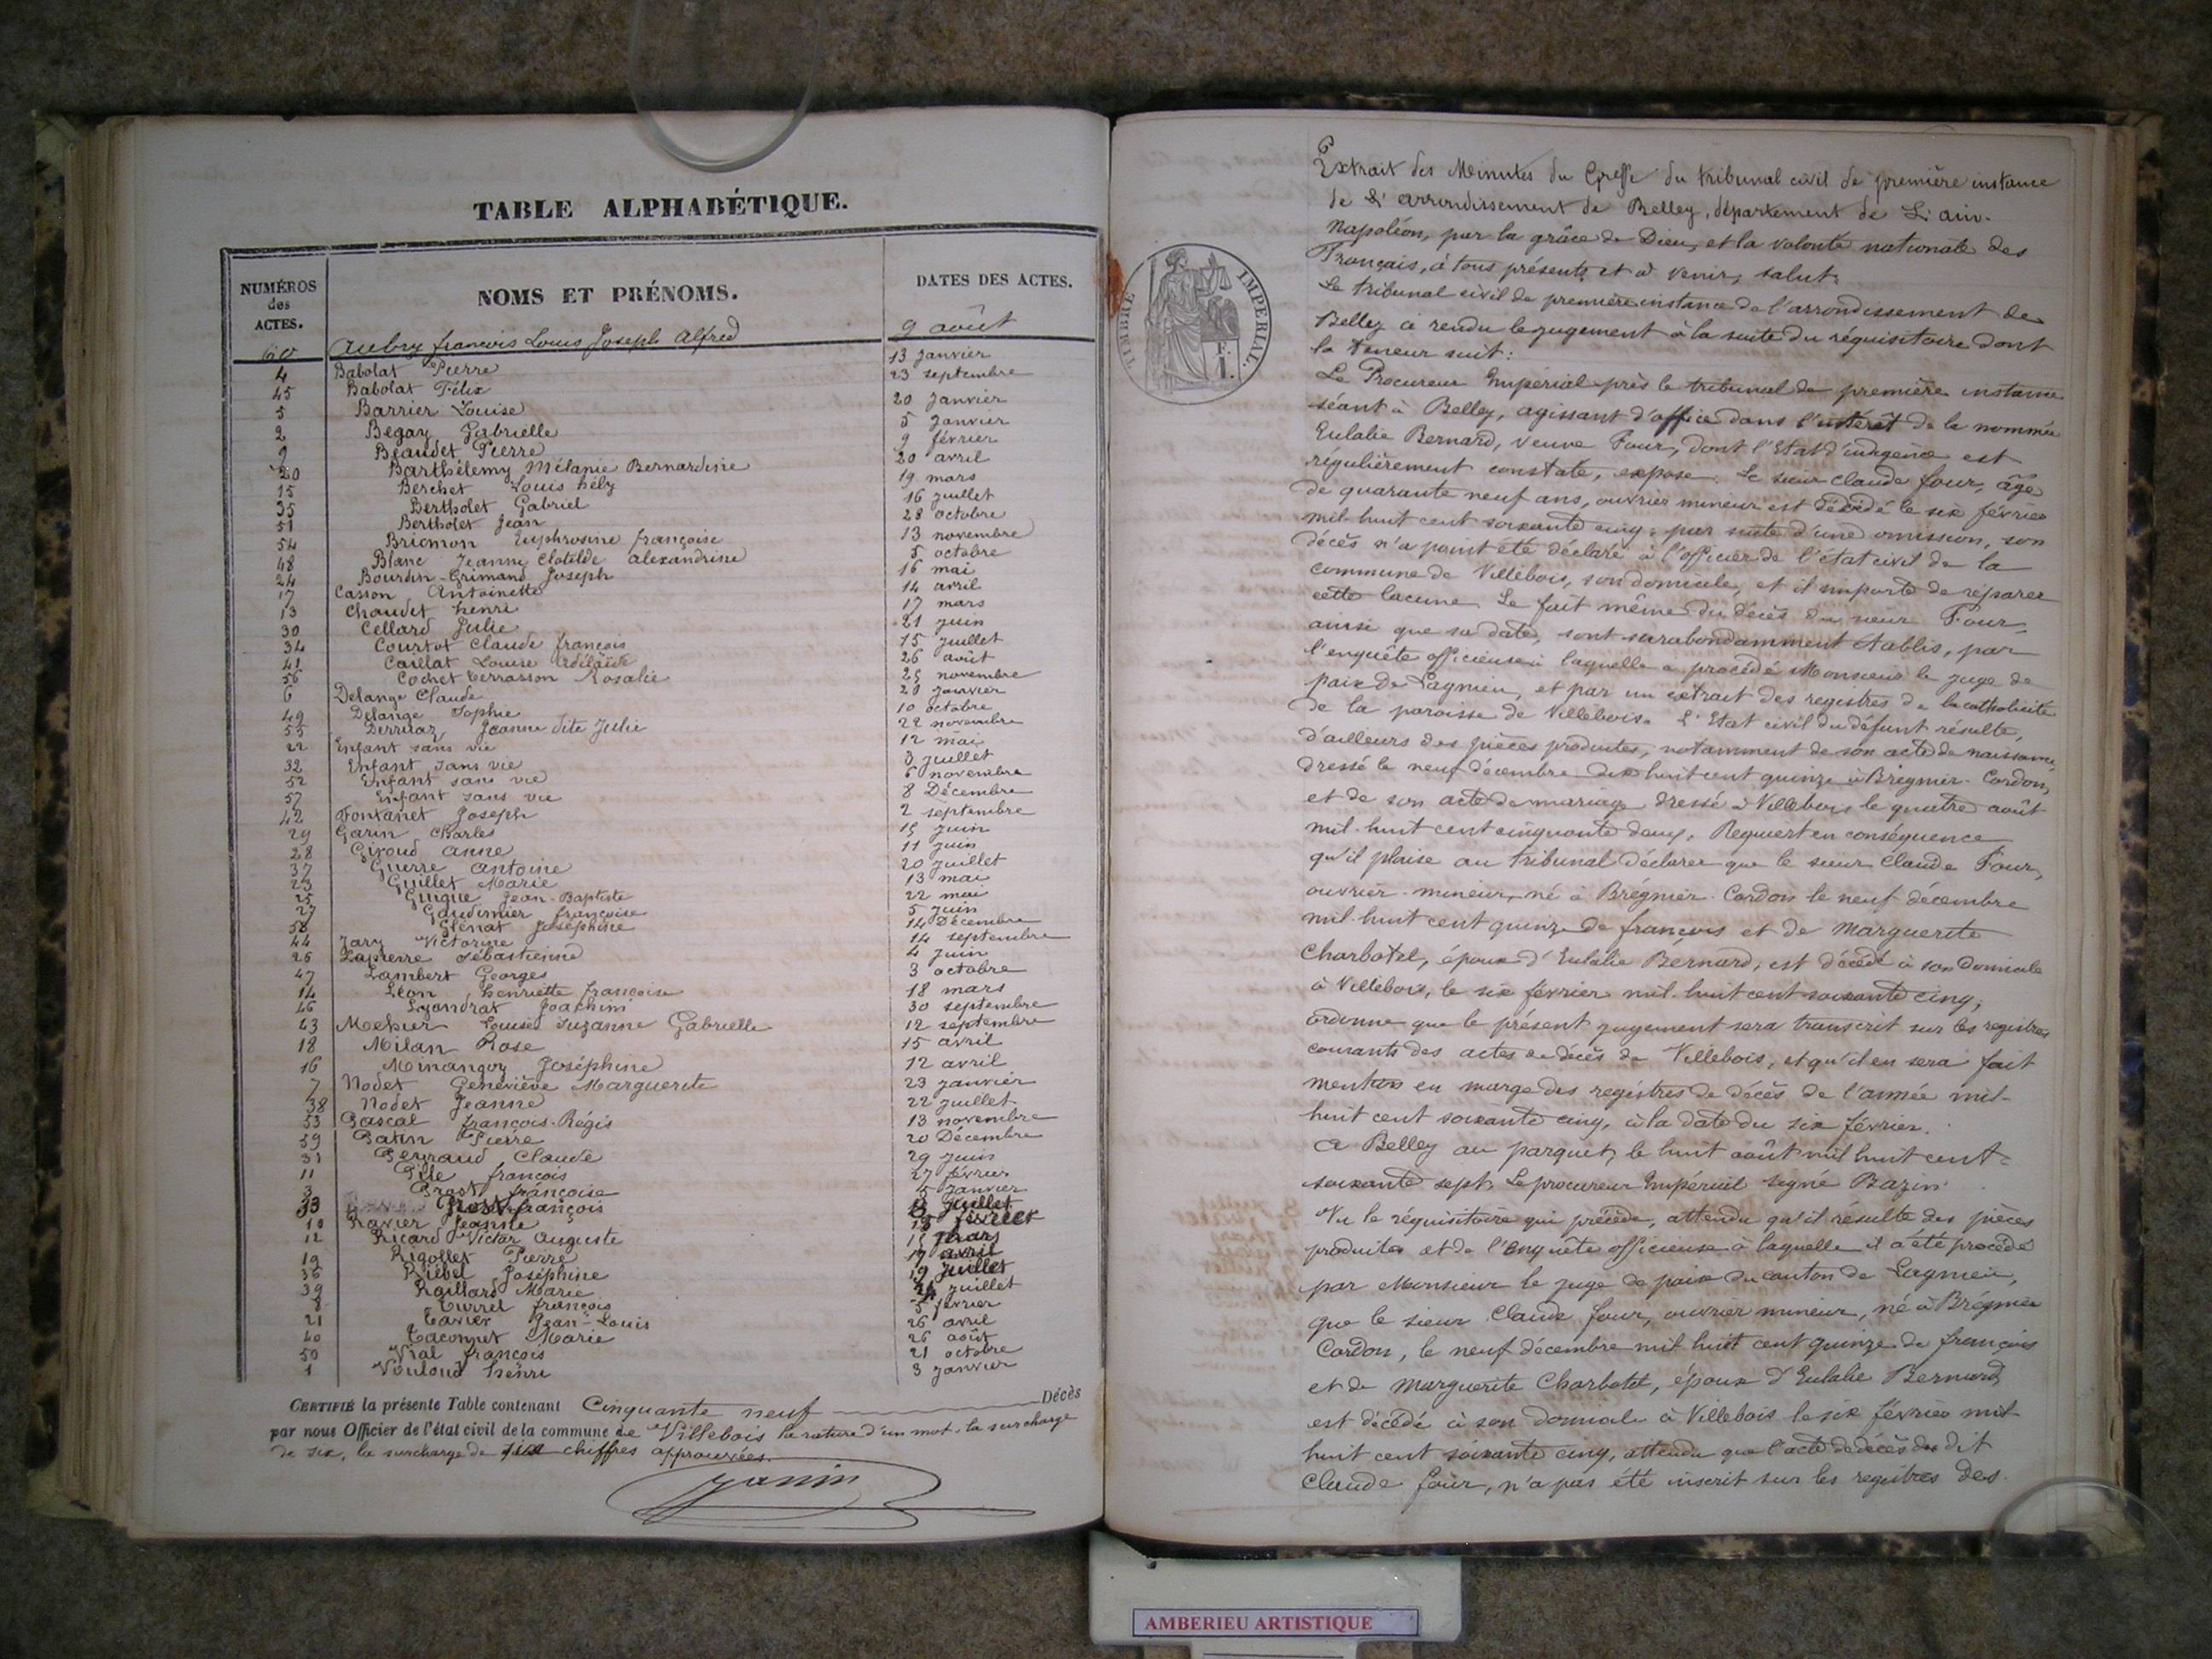 TABLE ALPHABÉTIQUE.
NUMÉROS des ACTES.
NOMS ET PRÉNOMS.
DATES DES ACTES.
60 Aubry françois Louis Joseph Alfred 9 août
4 Babolat Pierre 13 Janvier
45 Babolat Félix 23 septembre
5 Barrier Louise 20 Janvier
2 Begay Gabrielle 5 Janvier
9 Beaudet Pierre 9 février
20 Barthélemy Mélanie Bernardine 20 avril
15 Berchet Louis hély 19 mars
35 Bertholet Gabriel 16 juillet
51 Bertholet Jean 28 octobre
54 Bricmon Euphrosine françoise 13 novembre
48 Blanc Jeanne Clotilde alexandrine 5 octobre
24 Bourdin-Grimand Joseph 16 mai
17 Casson Antoinette 14 avril
13 Chaudet henri 17 mars
30 Cellard Julie 21 juin
34 Courtot Claude françois 15 juillet
41 Caillat Louise Adélaïde 26 août
56 Cochet terrasson Rosalie 25 novembre
6 Delange Claude 20 janvier
49 Delange Sophie 10 octobre
55 Derruaz Jeanne dite Julie 22 novembre
22 Enfant sans vie 12 mai
32 Enfant sans vie 6 juillet
52 Enfant sans vie 6 novembre
57 Enfant sans vie 8 Décembre
42 Fontanet Joseph 2 septembre
29 Garin Charles 15 juin
28 Giroud Anne 11 juin
37 Guerre Antoine 20 juillet
23 Guillet Marie 13 mai
25 Guigue Jean-Baptiste 22 mai
27 Gaudimier françoise 5 juin
58 Glénat Joséphine 14 Décembre
44 Jary Victorine 14 septembre
26 Lapierre Sébastienne 4 juin
47 Lambert Georges 3 octobre
14 Léon henriette françoise 18 mars
46 Lyandrat Joachim 30 septembre
43 Mehier Louise Suzanne Gabrielle 12 septembre
18 Milan Rose 15 avril
16 Minangoy Joséphine 12 avril
7 Nodet Geneviève Marguerite 23 janvier
38 Nodet Jeanne 22 juillet
53 Pascal françois-Régis 13 novembre
59 Patin Pierre 20 Décembre
31 Peyraud Claude 29 juin
11 Pille françois 27 février
3 Prost françoise 5 Janvier
33 Prost françois juillet
10 Ravier Jeanne 15 février
12 Ricard Victor Auguste 15 mars
19 Rigollet Pierre 17 avril
36 Riebel Joséphine 19 juillet
39 Raillard Marie 24 juillet
8 Turrel françois 5 février
21 Tavier Jean-Louis 26 avril
40 Taconnet Marie 26 août
50 Vial françois 21 octobre
1 Vouloud henri 3 janvier
CERTIFIÉ la présente Table contenant Cinquante neuf Décès
par nous Officier de l'état civil de la commune de Villebois la rature d'un mot, la surcharge
de six, la surcharge de six chiffres approuvées.
Janin
TIMBRE IMPÉRIAL.
Extrait des Minutes du Greffe du tribunal civil de première instance
de L'arrondissement de Belley, département de L'ain.
Napoléon, par la grâce de Dieu, et la volonté nationale des
Français, à tous présents et à venir, salut.
Le tribunal civil de première instance de l'arrondissement de
Belley a rendu le jugement à la suite du réquisitoire dont
la teneur suit:
Le Procureur Impérial près le tribunal de première instance
séant à Belley, agissant d'office dans l'intérêt de la nommée
Eulalie Bernard, veuve Four, dont l'Etat d'indigence est
régulièrement constaté, expose: Le sieur Claude four, âgé
de quarante neuf ans, ouvrier mineur est décédé le six février
mil-huit cent soixante cinq; par suite d'une omission, son
décès n'a point été déclaré à l'officier de l'état civil de la
commune de Villebois, son domicile, et il importe de réparer
cette lacune. Le fait même du décès du sieur Four,
ainsi que sa date, sont surabondamment établis, par
l'enquête officieuse à laquelle a procédé Monsieur le juge de
paix de Lagnieu, et par un extrait des registres de la catholicité
de la paroisse de Villebois. L'Etat civil du défunt résulte,
d'ailleurs des pièces produites, notamment de son acte de naissance,
dressé le neuf décembre dix huit cent quinze à Brégnier-Cordon,
et de son acte de mariage dressé à Villebois le quatre août
mil-huit cent cinquante deux. Requiert en conséquence
qu'il plaise au tribunal déclarer que le sieur Claude Four,
ouvrier-mineur, né à Brégnier-Cordon le neuf décembre
mil-huit cent quinze de françois et de Marguerite
Charbotel, époux d'Eulalie Bernard, est décédé à son domicile
à Villebois, le six février mil-huit cent soixante cinq;
ordonne que le présent jugement sera transcrit sur les registres
courants des actes de décès de Villebois, et qu'il en sera fait
mention en marge des registres de décès de l'année mil-
huit cent soixante cinq, à la date du six février.
A Belley au parquet, le huit août mil huit cent-
soixante sept, Le procureur Impérial signé Bazin.
Vu le réquisitoire qui précède, attendu qu'il résulte des pièces
produites et de l'enquête officieuse à laquelle il a été procédé
par Monsieur le juge de paix du canton de Lagnieu,
que le sieur Claude four, ouvrier mineur, né à Brégnier
Cordon, le neuf décembre mil huit cent quinze de françois
et de Marguerite Charbotel, époux d'Eulalie Bernard
est décédé à son domicile à Villebois le six février mil
huit cent soixante cinq, attendu que l'acte de décès du dit
Claude four, n'a pas été inscrit sur les registres des
AMBERIEU ARTISTIQUE